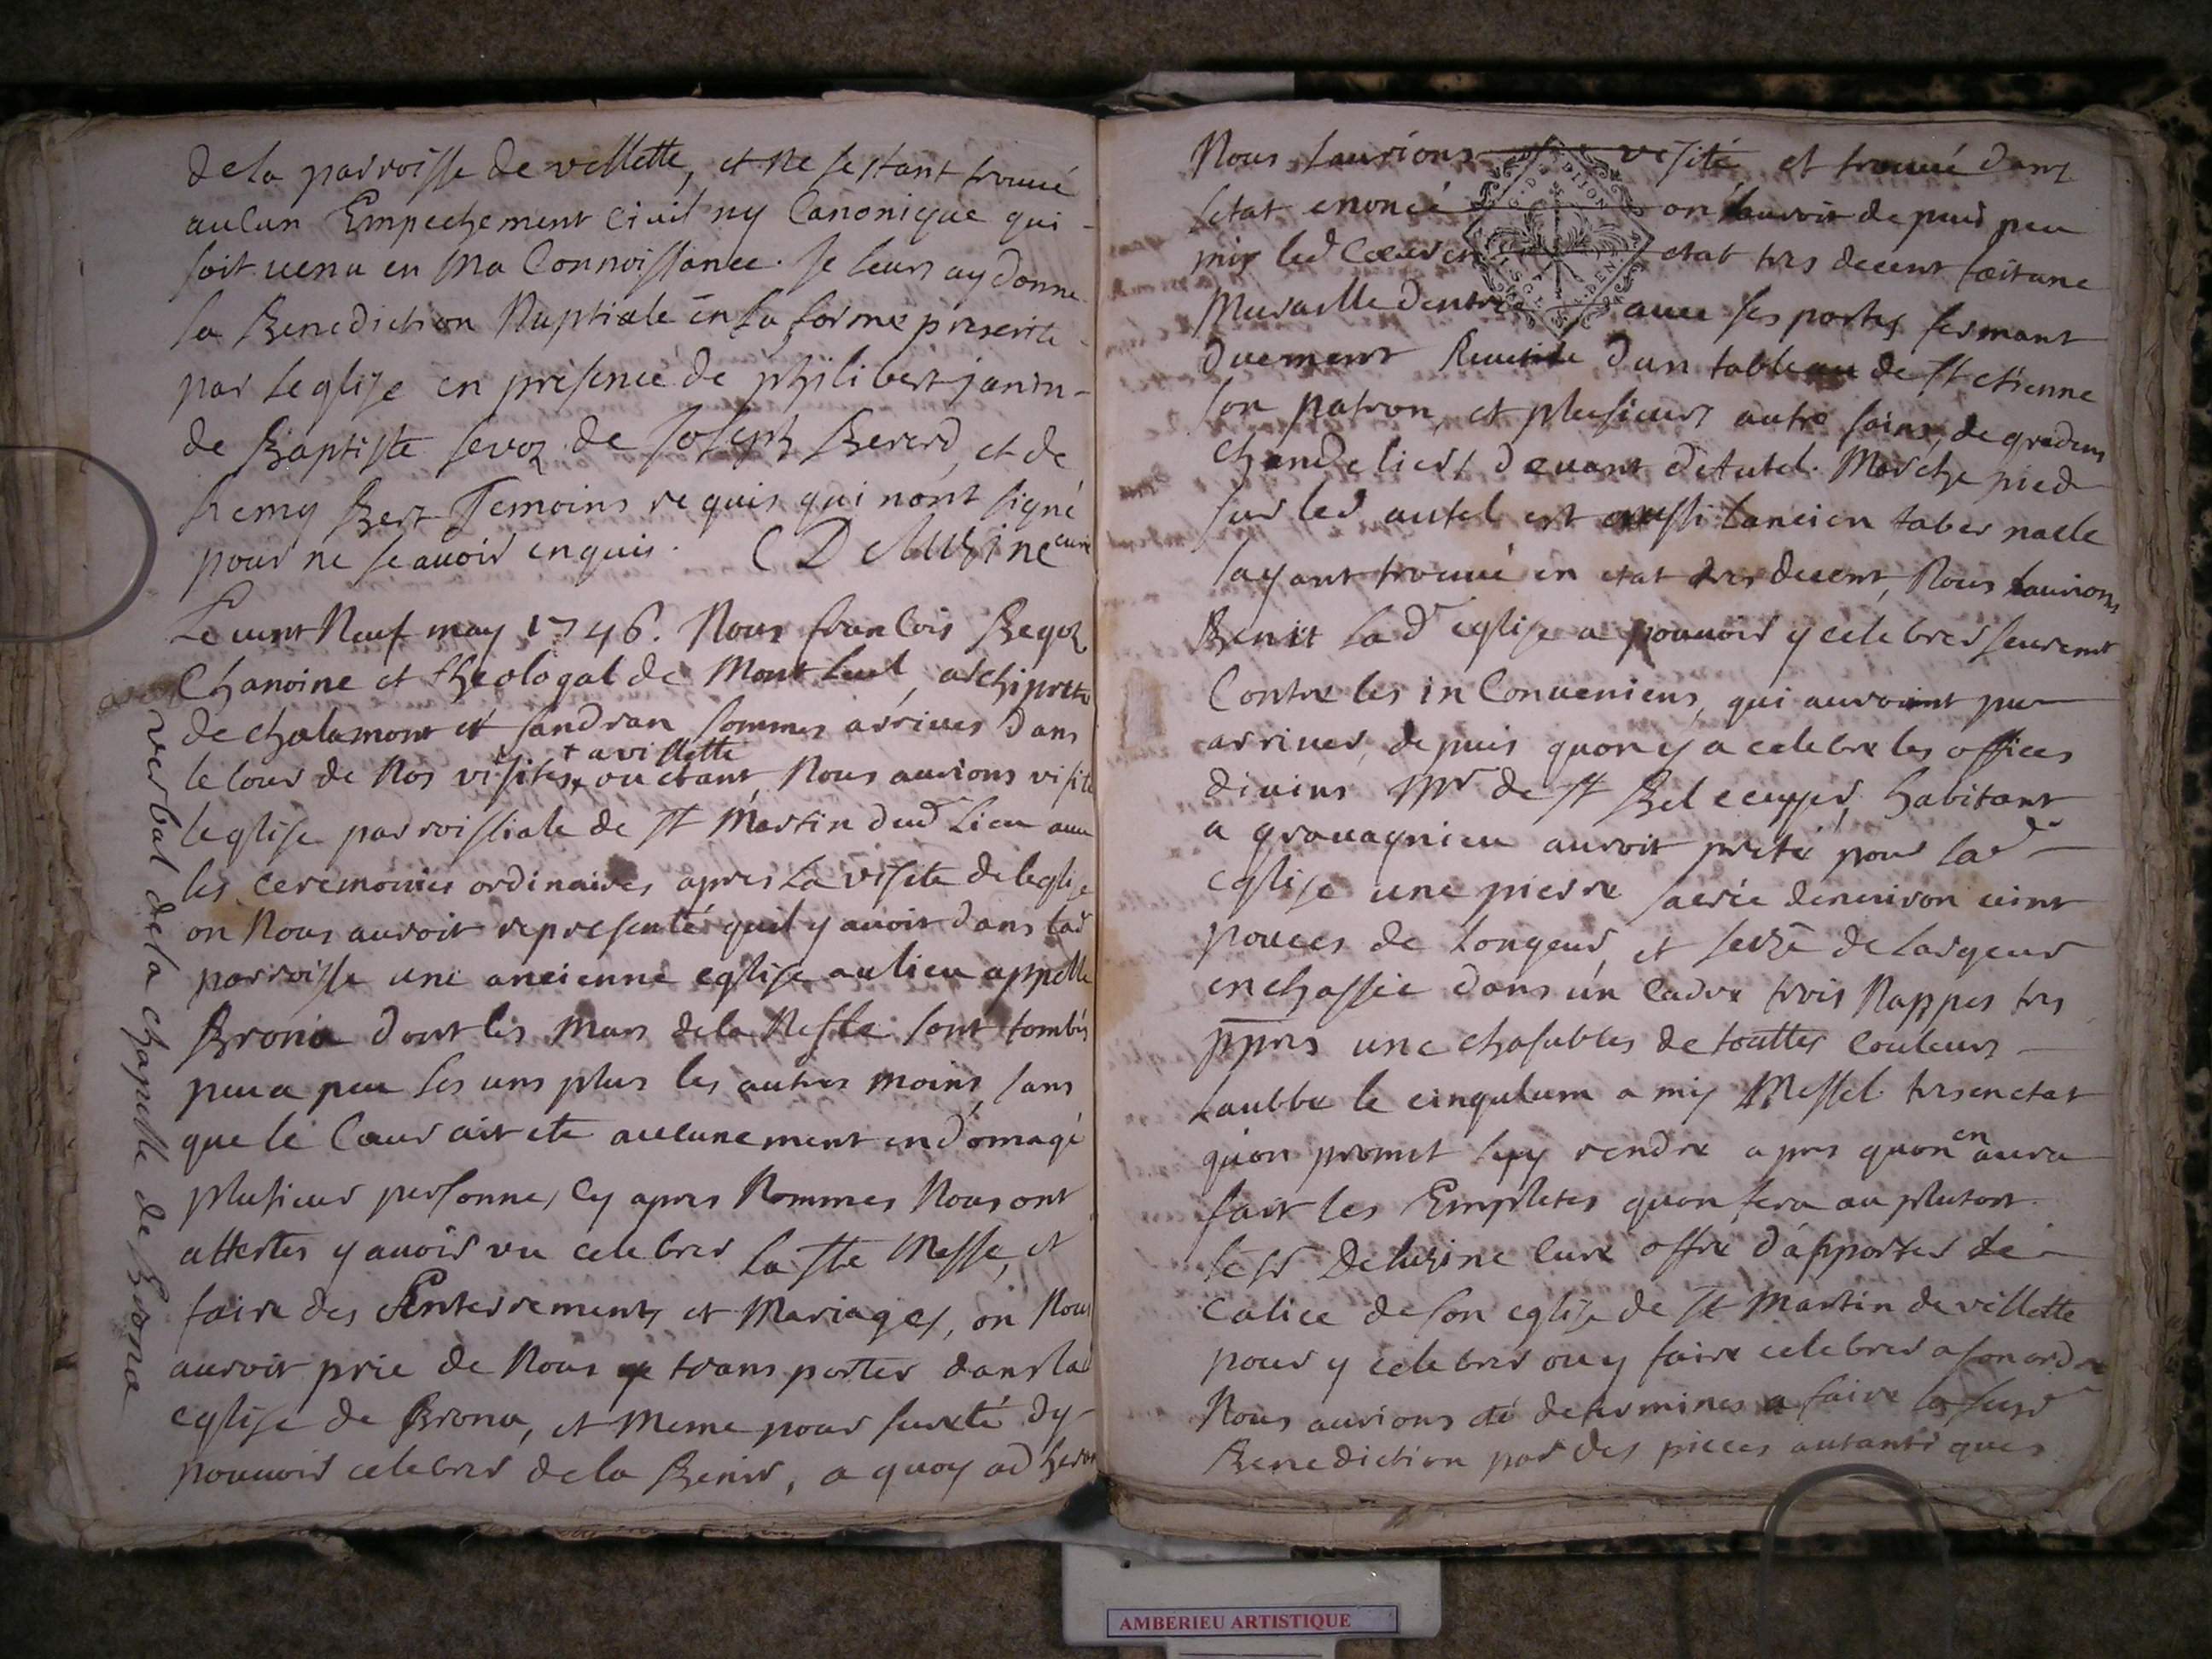 dela parroisse de villette, et ne sestant trouué
aucun Empechement Civil ny Canonique qui
soit uenu en ma Connoissance. Je leurs ay donne
la Benediction Nuptiale en la forme prescrite
par leglise en presence de philibert janin
de Baptiste sevoz de Joseph Bererd, et de
Remy Bert Temoins requis qui nont signé
pour ne scauoir enquis. C Deluzine curé
Le uint Neuf may 1746. Nous francois Begoz
Chanoine et theologal de Montluel, archiprete
de chalamont et sandran sommes arriues dans
le cour de Nos visites + a villette ou etant, Nous aurions visité
leglise parroissiale de st Martin dud Lieu auec
les ceremonies ordinaires apres la visite de leglise
on Nous auroit representé quil y auoit dans lad
parroisse une ancienne eglise au lieu appellé
Brona dont les murs dela Neffe sont tombés
peu a peu les uns plus les autres moins, sans
que le Cœur ait ete aucunement endomagé
plusieur personne, cy apres Nommes Nous ont
attestes y auoir vu celebrer la ste Messe, et
faire des Enterrements et Mariages, on Nous
auroit prie de Nous transporter dans lad
eglise de Brona, et Meme pour sureté dy
pouuoir celebrer de la Benir, a quoy adheran
verbal dela chapelle de Brona
Nous laurions visité et trouué dans
letat enoncé on lauroit depuis peu
mis led Cœur en etat tres decent fait une
Muraille dentrée auec ses portes fermant
duement Reuetüe dun tableau de st etienne
son patron, et plusieurs autre sains, de gradins
chandeliers deuant dAutel. Marche pied
sur led autel est aussi lancien tabernacle
layant trouué en etat tres decent, Nous laurions
Benit lade eglise a pouuoir y celebrer seurement
Contre les inConueniens, qui auroient pu
arriuer, depuis quon y a celebré les offices
diuins Mr de st Bel ecuyer, habitant
a grauagnieu auroit preté pour lade
Eglise une pierre sacrée denuiron uint
pouces de Longeur, et seize de largeur
enchassée dans un Cadre trois Nappes tres
ppres une chasubles de touttes Couleurs
Laubbe le cingulum amis Messel tres en etat
quon promet luy rendre apres quon en aura
fait les Empletes quon fera au plutost
le sr Deluzine Curé offre dapporter le
Calice de son eglise de st Martin de villette
pour y celebrer ou y faire celebrer a son ordre
Nous aurions eté determines a faire la susde
Benediction par des pieces autantiques
G. DE DIJON
AMBERIEU ARTISTIQUE